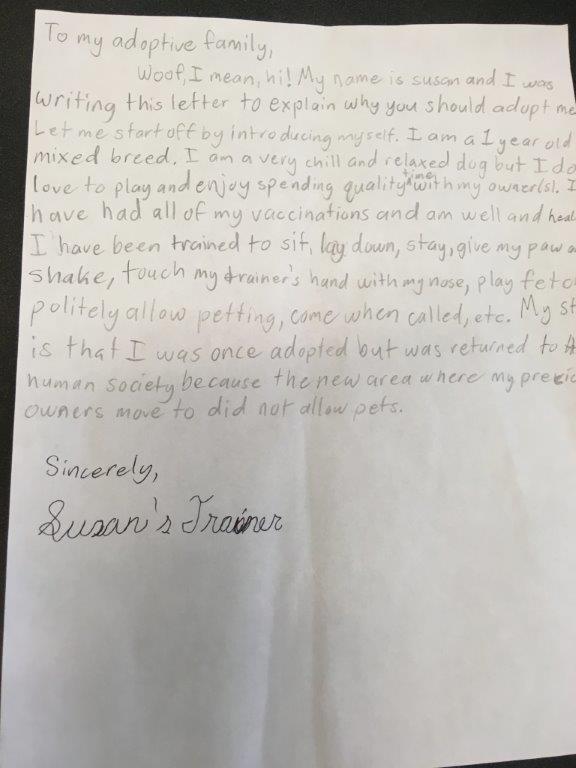 To my adoptive family,
Woof, I mean, hi! My name is susan and I was
writing this letter to explain why you should adopt me
Let me start off by introducing myself. I am a 1 year old
mixed breed. I am a very chill and relaxed dog but I do
love to play and enjoy spending quality time with my owner(s). I
have had all of my vaccinations and am well and heal
I have been trained to sit, lay down, stay, give my paw a
shake, touch my trainer's hand with my nose, play fetc
politely allow petting, come when called, etc. My st
is that I was once adopted but was returned to
human society because the new area where my
owners move to did not allow pets.
Sincerely,
Susan's Trainer